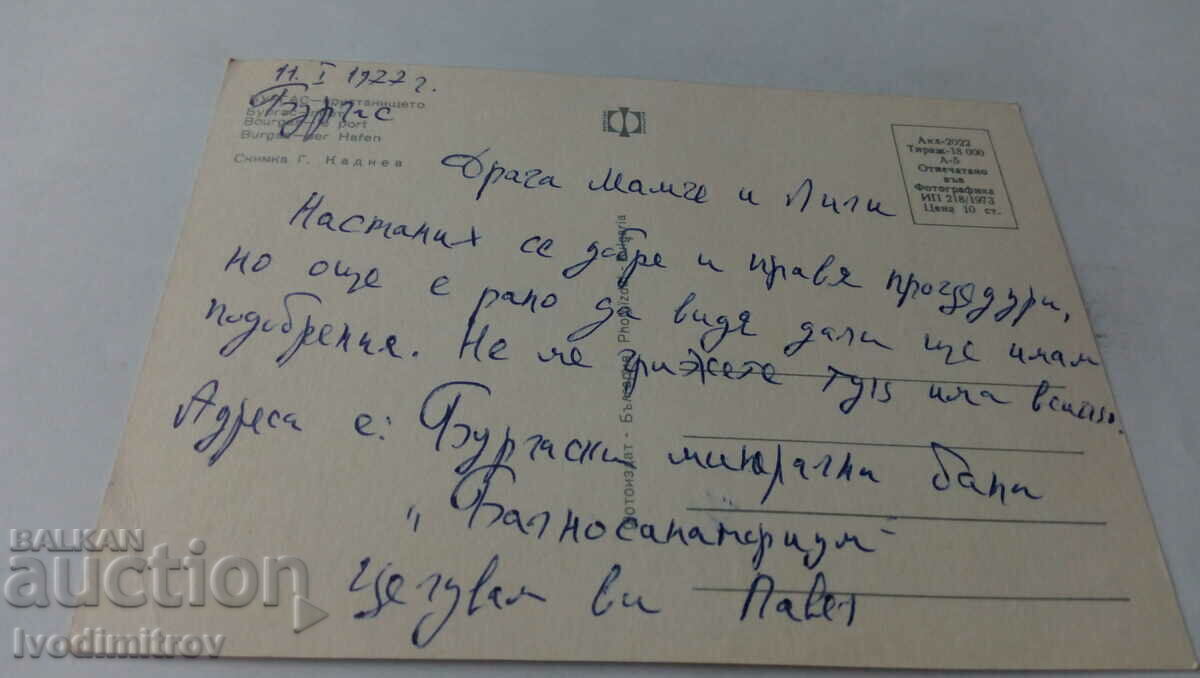 11. I 1977 г.
Бургас
БУРГАС—пристанището
Bourgas—le port
Burgas—der Hafen
Снимка Г. Каднев
Акл-2022
Тираж-18 000
А-5
Отпечатано
във
Фотографика
ИП 218/1973
Цена 10 ст.
Драга Мамче и Лили
Настаних се добре и правя процедури,
но още е рано да видя дали ще имам
подобрения. Не ме грижете тук има всичко.
Адреса е: Бургаски минерални бани
„Балносанаториум"
Целувам ви Павел
Фотоиздат - България Photoizdat - Bulgaria
BALKAN
auction
Ivodimitrov